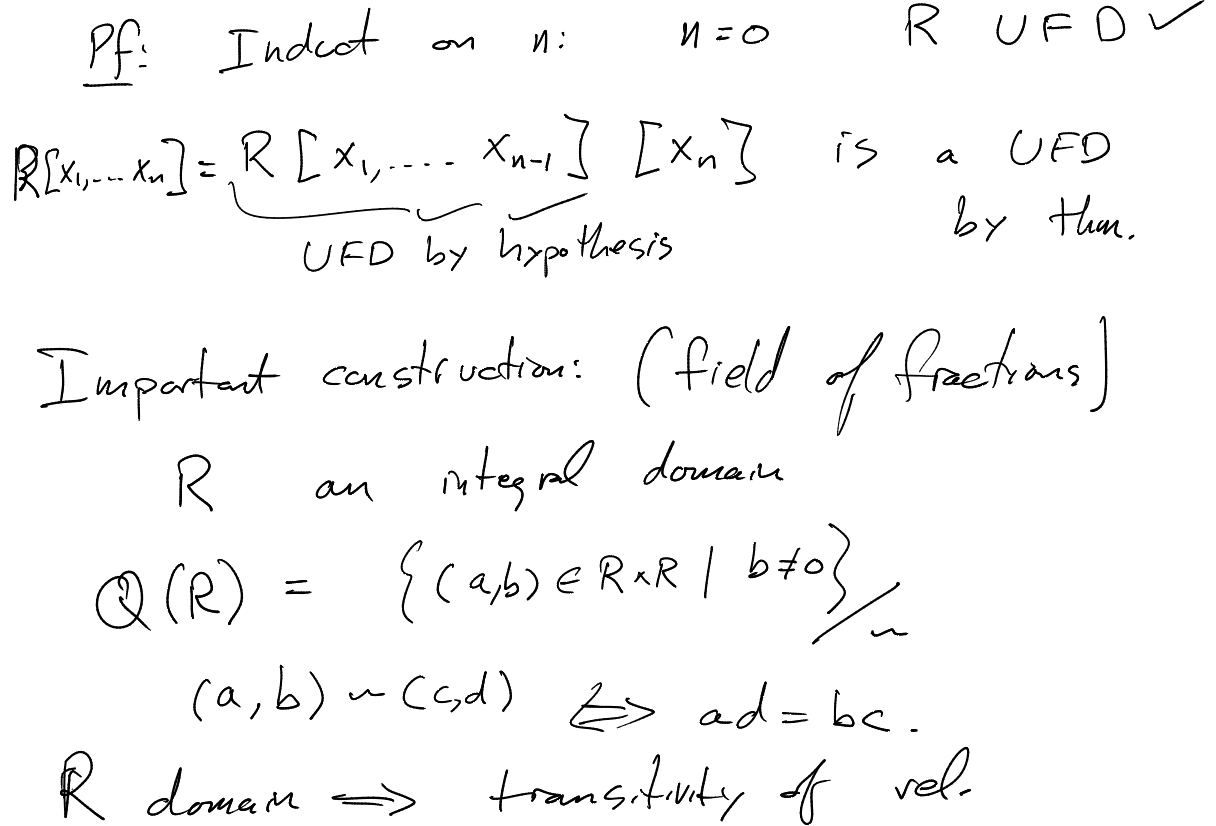 Pf: Induct on n: n=0 R UFD ✓
R[x₁,... xₙ] = R[x₁,.... xₙ₋₁][xₙ] is a UFD
UFD by hypothesis by thm.
Important construction: (field of fractions)
R an integral domain
Q(R) = {(a,b) ∈ R×R | b≠0}/~
(a,b) ~ (c,d) ⟺ ad = bc.
R domain ⟹ transitivity of rel.